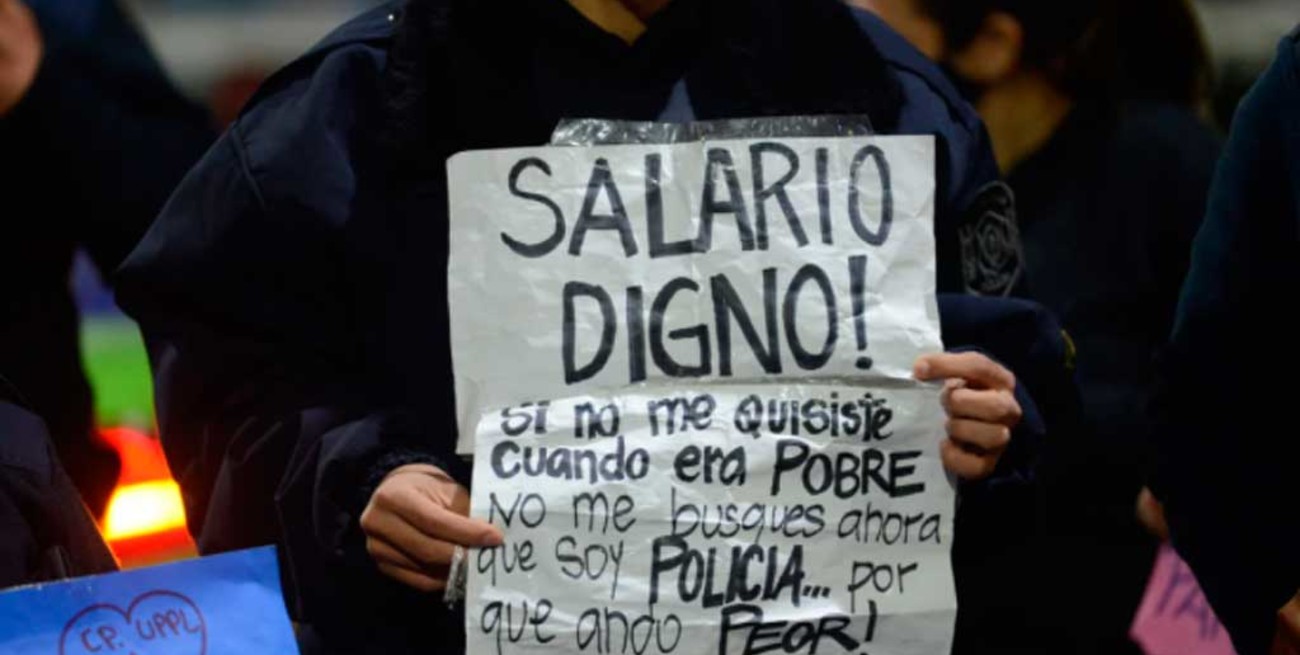 SALARIO
DIGNO!
SI no me QUISISTE
Cuando era POBRE
NO me busques ahora
que soy POLICIA... por
que ando PEOR!
CP. UPPL
PA